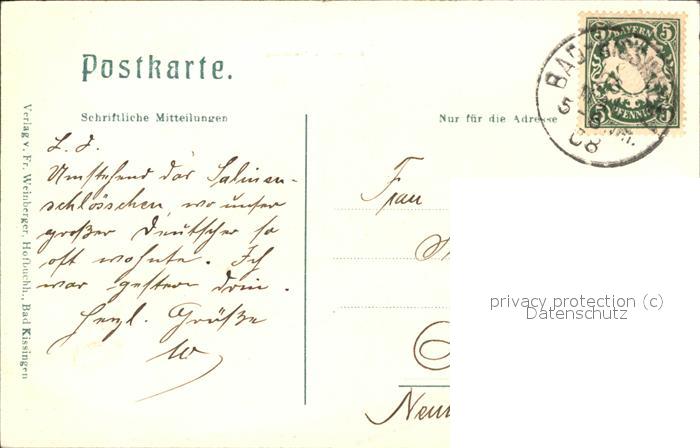 Postkarte.
BAYERN
5 5
PFENNIG
BAD KISSINGEN
5-6 NM.
08
Schriftliche Mitteilungen
Nur für die Adresse
L. J.
Umstehend das Salinen-
schlösschen, wo unser
großer Deutscher so
oft wohnte. Ich
war gestern drin.
Herzl. Grüße
W
Frau
Neu
Verlag v. Fr. Weinberger, Hofbuchh., Bad Kissingen
privacy protection (c)
Datenschutz